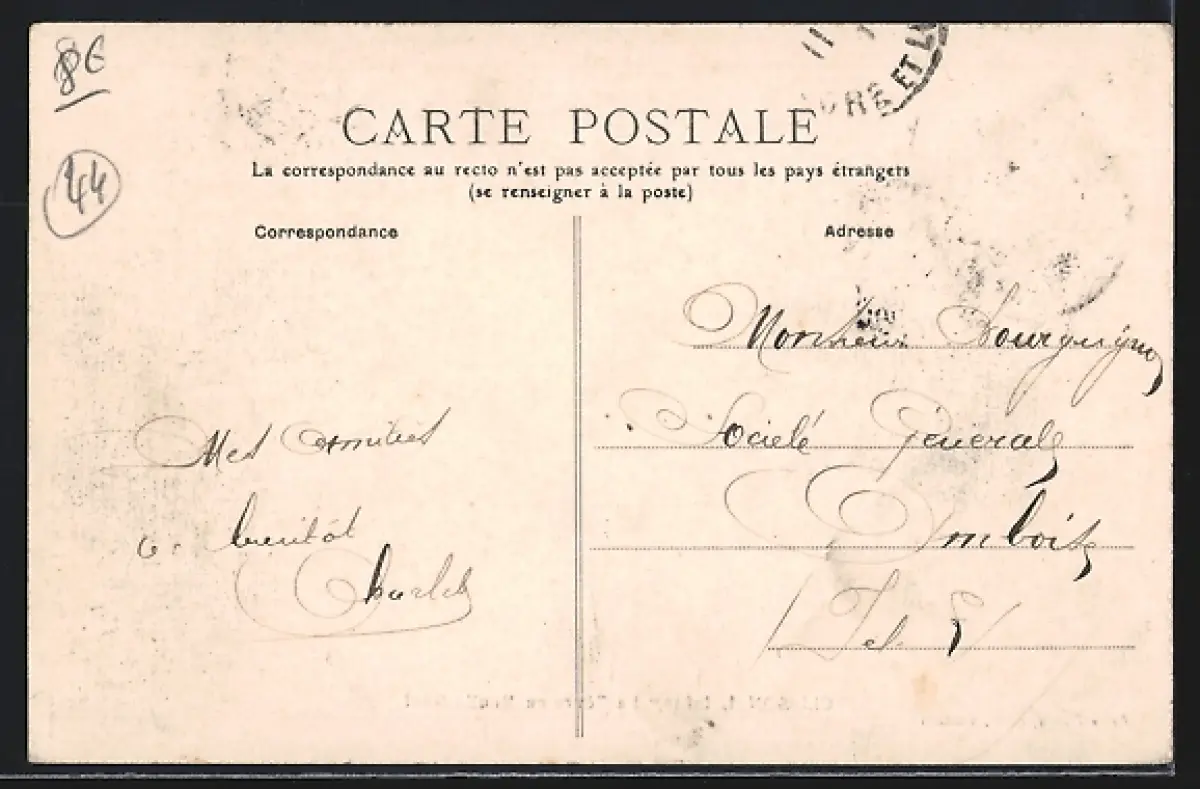 8€
44
11
ET
CARTE POSTALE
La correspondance au recto n'est pas acceptée par tous les pays étrangers
(se renseigner à la poste)
Correspondance
Adresse
Monsieur Bourguignon
Société Générale
Amboise
I et L
Mes amitiés
à bientôt
Charles